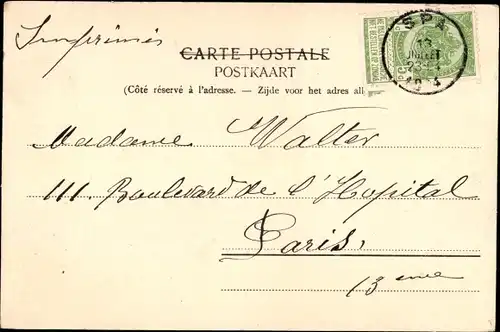 Imprimés
CARTE POSTALE
POSTKAART
(Côté réservé à l'adresse. — Zijde voor het adres al
SPA
13
JUILLET
Madame Walter
111. Boulevard de l'Hopital
Paris.
13eme